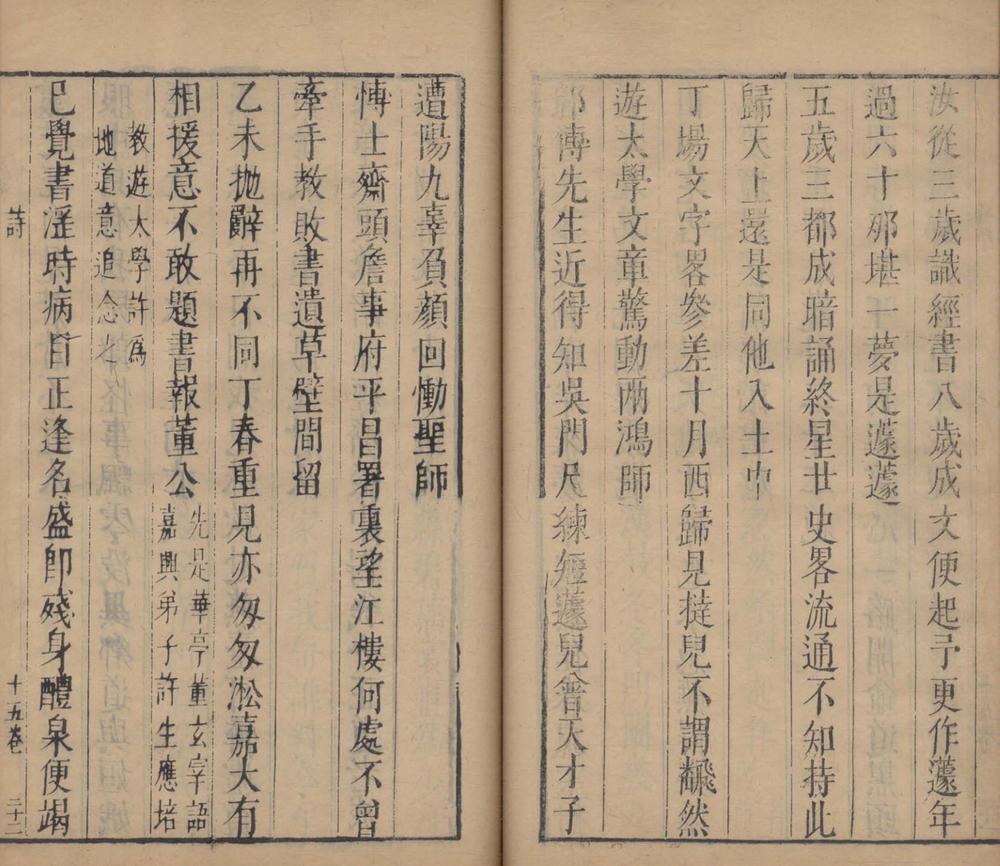 汝從三歲識經書八歲成文便起予更作蘧年
過六十那堪一夢是蘧蘧
五歲三都成暗誦終星廿史畧流通不知持此
歸天上還是同他入土中
丁場文字畧參差十月西歸見撻兒不謂飜然
遊太學文章驚動兩鴻師
部傳先生近得知吳門尺練短蘧兒曾天才子
遭陽九辜負顏回慟聖師
博士齋頭詹事府平昌署裏望江樓何處不曾
牽手教敗書遺草壁間留
乙未拋辭再不同丁春重見亦匆匆淞嘉大有
相援意不敢題書報董公
先是華亭董玄宰語
嘉興弟子許生應培
教遊太學許爲
地道意追念之
已覺書淫時病目正逢名盛即殘身醴泉便竭
詩
十五卷
二十二